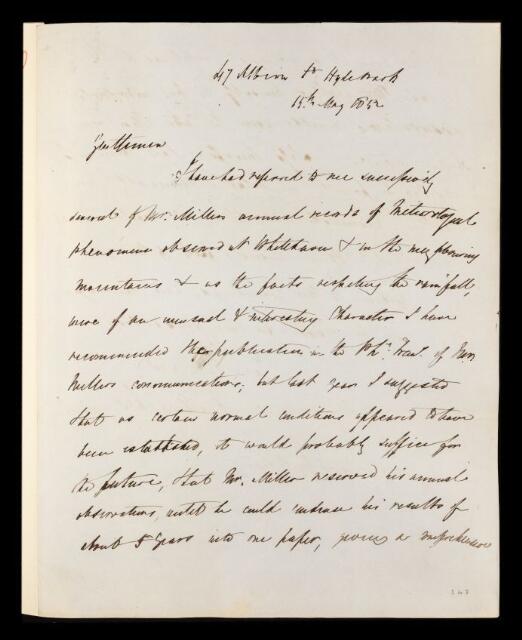 47 Albion St Hyde Park
15th May 1852
Gentlemen
I have had referred to me successively
several of Mr. Millers annual records of Meteorological
phenomena observed at Whitehaven & in the neighbouring
mountains & as the facts respecting the rainfall,
were of an unusual & interesting character I have
recommended the publication in the Phl. Trans. of Mr.
Millers communications; but last year I suggested
that as certain normal conditions appeared to have
been established, it would probably suffice for
the future, that Mr. Miller reserved his annual
observations, until he could embrace his results of
about 5 years into one paper, giving a comprehensive
343